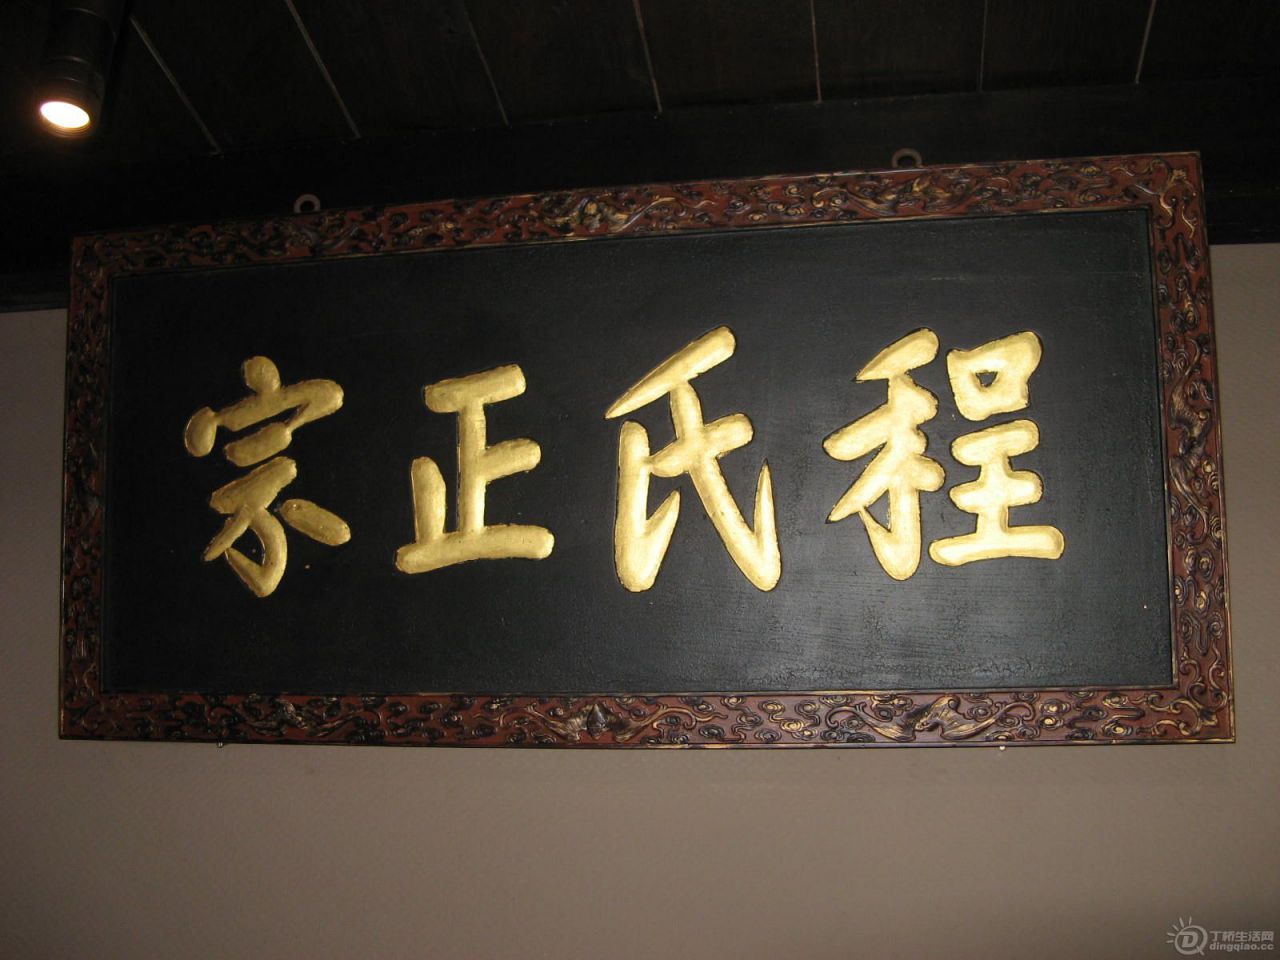 程氏正宗
丁桥生活网
dingqiao.cc